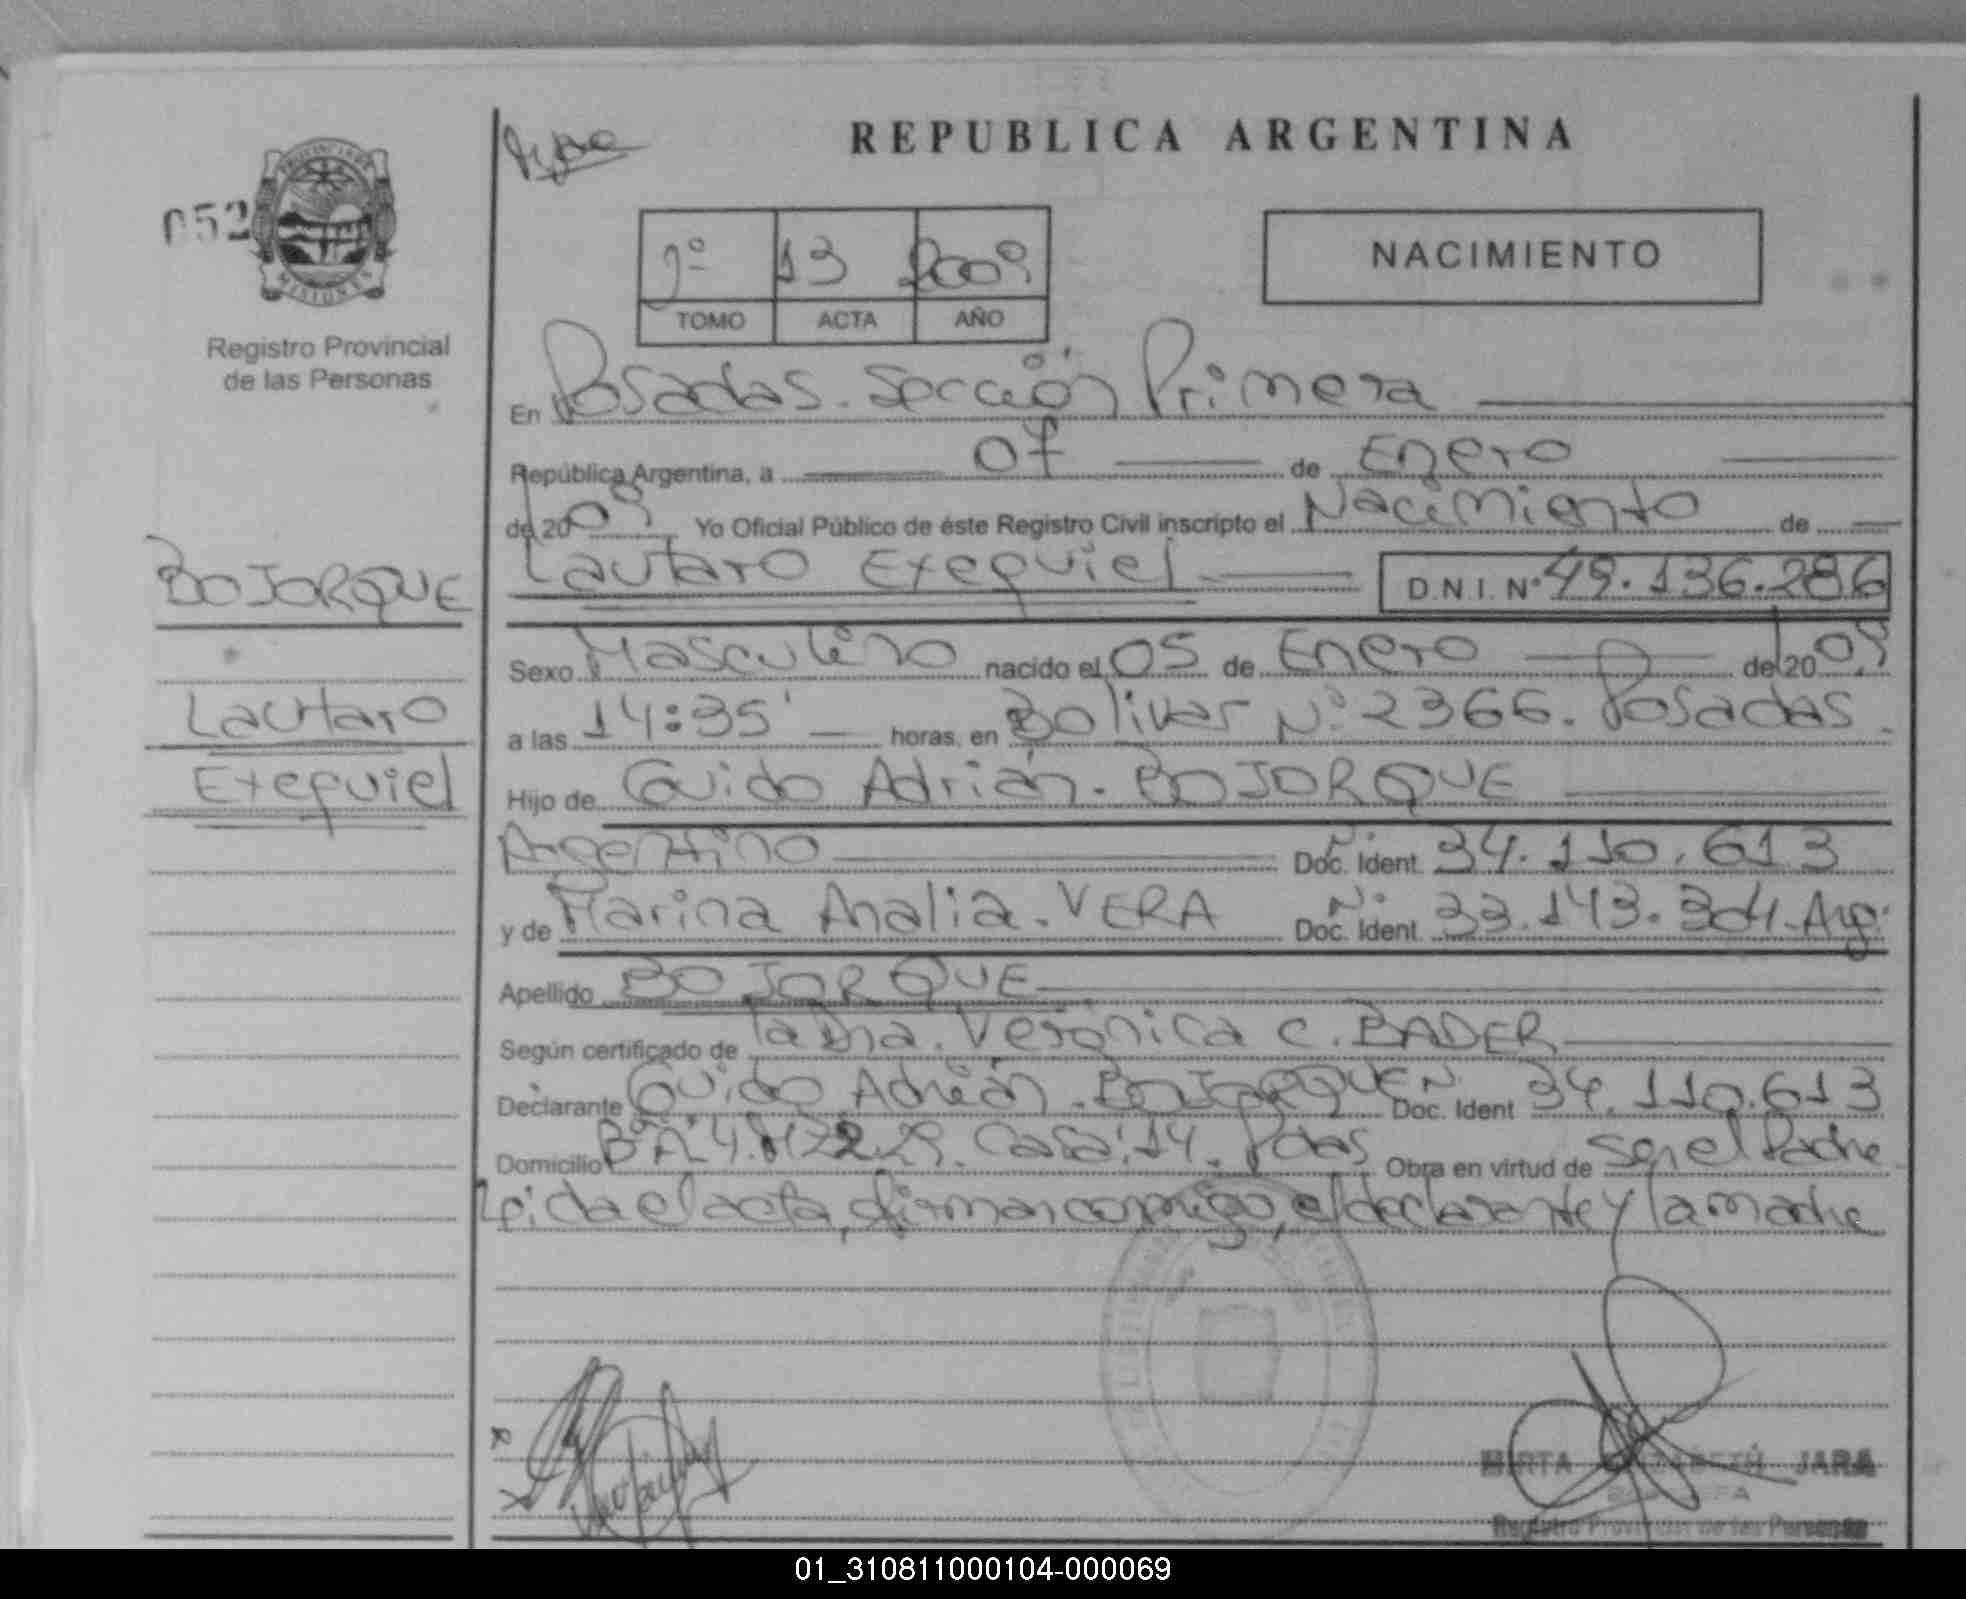 REPUBLICA ARGENTINA
052
PROVINCIA DE MISIONES
Registro Provincial
de las Personas
1º 13 2009
TOMO ACTA AÑO
NACIMIENTO
En Posadas. Sección Primera
República Argentina, a 07 de Enero
de 2009 Yo Oficial Público de éste Registro Civil inscripto el Nacimiento de
BOJORQUE
Lautaro
Exequiel
Lautaro Exequiel D.N.I. Nº 49.136.286
Sexo Masculino nacido el 05 de Enero de 2009
a las 14:35' horas, en Bolivar Nº 2366. Posadas.
Hijo de Guido Adrián. BOJORQUE
Argentino Doc. Ident. Nº 34.110.613
y de Marina Analia. VERA Doc. Ident. Nº 33.143.304. Arg.
Apellido BOJORQUE
Según certificado de la Dra. Verónica C. BADER
Declarante Guido Adrián. BOJORQUE Nº Doc. Ident 34.110.613
Domicilio Casa: 14. Pdas Obra en virtud de ser el Padre
Leida el acta, firman conmigo, el declarante y la madre
JARA
Registro Provincial de las Personas
01_310811000104-000069